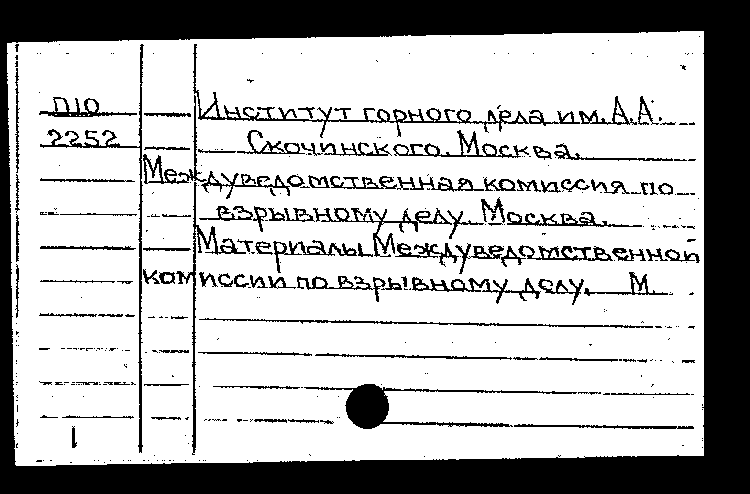 П10
2252
Институт горного дела им. А.А.
Скочинского. Москва.
Междуведомственная комиссия по
взрывному делу. Москва.
Материалы Междуведомственной
комиссии по взрывному делу. М.
1